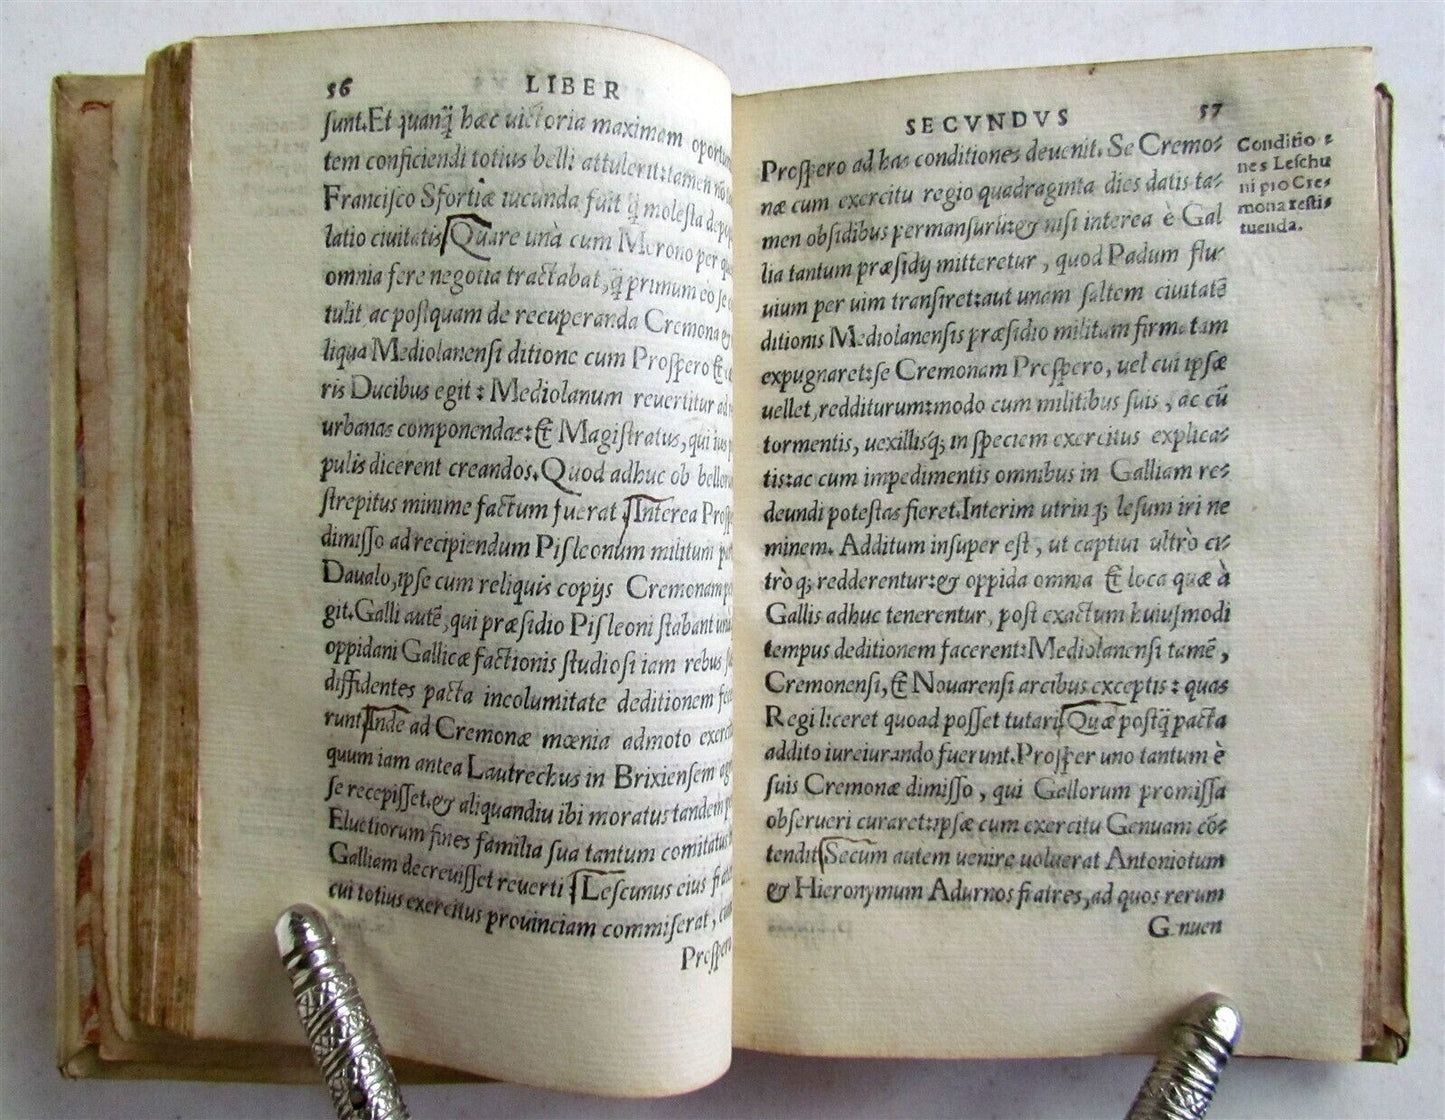 56 LIBER
sunt. Et quanq̃ hæc uictoria maximam
tem conficiendi totius belli attulerit: tamen
Francisco Sfortiæ iucunda fuit q̃ molesta
latio ciuitatis. Quare unà cum Morono per
omnia fere negotia tractabat, q̃ primum eò se
tulit ac postquam de recuperanda Cremona &
liqua Mediolanensi ditione cum Prospero &
ris Ducibus egit: Mediolanum reuertitur ad
urbanas componendas: Et Magistratus, qui ius
pulis dicerent creandos. Quod adhuc ob
strepitus minime factum fuerat. Interea
dimisso ad recipiendum Pisleonum militum
Daualo, ipse cum reliquis copijs Cremonam
git. Galli autẽ, qui præsidio Pisleoni stabant
oppidani Gallicæ factionis studiosi iam rebus
diffidentes pacta incolumitate deditionem
runt. Inde ad Cremonæ mœnia admoto
quum iam antea Lautrechus in Brixiensem
se recepisset. & aliquandiu ibi moratus tandem
Eluetiorum fines familia sua tantum
Galliam decreuisset reuerti. Lescunus eius
cui totius exercitus prouinciam commiserat,
SECVNDVS 57
Prospero ad has conditiones deuenit. Se Cremo-
næ cum exercitu regio quadraginta dies datis ta-
men obsidibus permansurũ: & nisi interea è Gal
lia tantum præsidij mitteretur, quod Padum flu-
uium per uim transiret: aut unam saltem ciuitatẽ
ditionis Mediolanensis præsidio militum firmatam
expugnaret: se Cremonam Prospero, uel cui ipsæ
uellet, redditurum: modo cum militibus suis, ac cũ
tormentis, uexillisq; in speciem exercitus explica-
tis: ac cum impedimentis omnibus in Galliam re-
deundi potestas fieret. Interim utrinq; lesum iri ne
minem. Additum insuper est, ut captiui ultrò ci-
tròq; redderentur: & oppida omnia & loca quæ à
Gallis adhuc tenerentur, post exactum huiusmodi
tempus deditionem facerent: Mediolanensi tamẽ,
Cremonensi, & Nouarensi arcibus exceptis: quas
Regi liceret quoad posset tutari. Quæ postq̃ pacta
addito iureiurando fuerunt. Prosper uno tantum è
suis Cremonæ dimisso, qui Gallorum promissa
obserueri curaret: ipsæ cum exercitu Genuam cõ-
tendit. Secum autem uenire uoluerat Antoniotum
& Hieronymum Adurnos fratres, ad quos rerum
Genuen
Conditio-
nes Leschu
ni pro Cre-
mona resti-
tuenda.